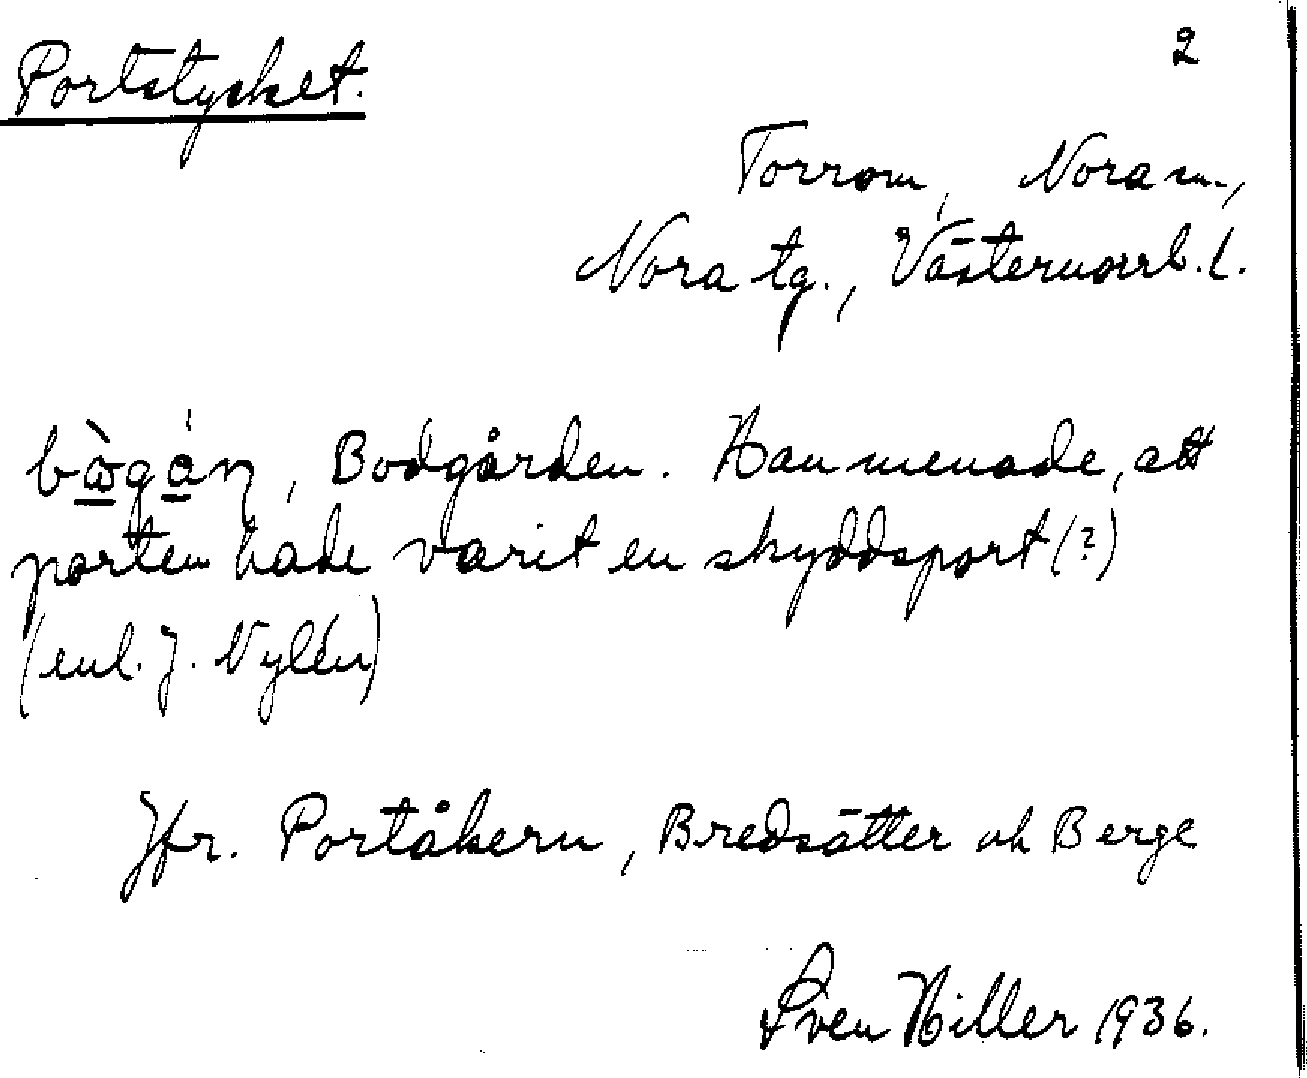 2
Portstycket.
Torrom, Nora sn.,
Nora tg., Västernorrl. l.
Bodgården. Han menade, att
porten hade varit en skyddsport (?)
(enl. J. Nylén)
Jfr. Portåkern, Bredsätter och Berge
Sven Hiller 1936.